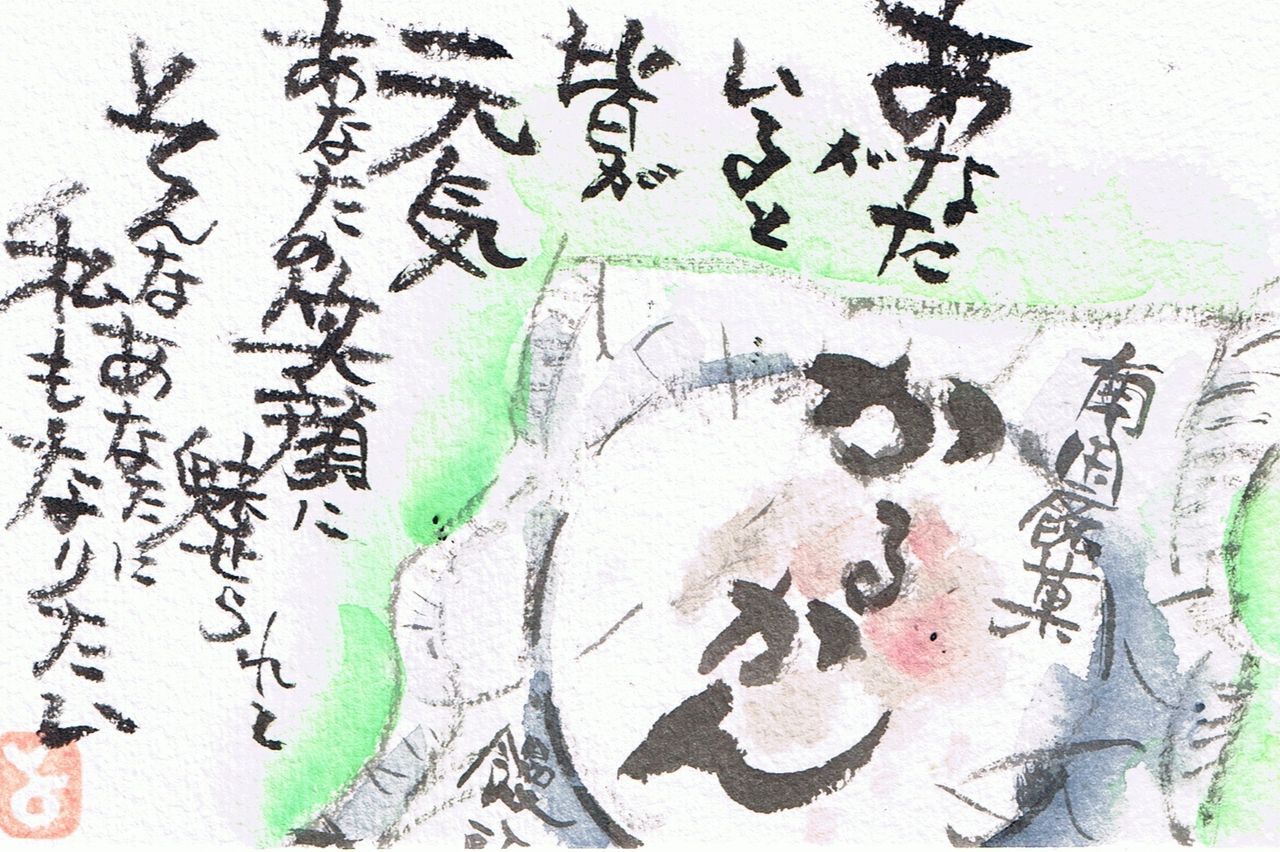 あなた
が
いると
皆が
元気
あなたの笑顔に
魅せられて
そんなあなたに
私もなりたい
南国銘菓
かるかん